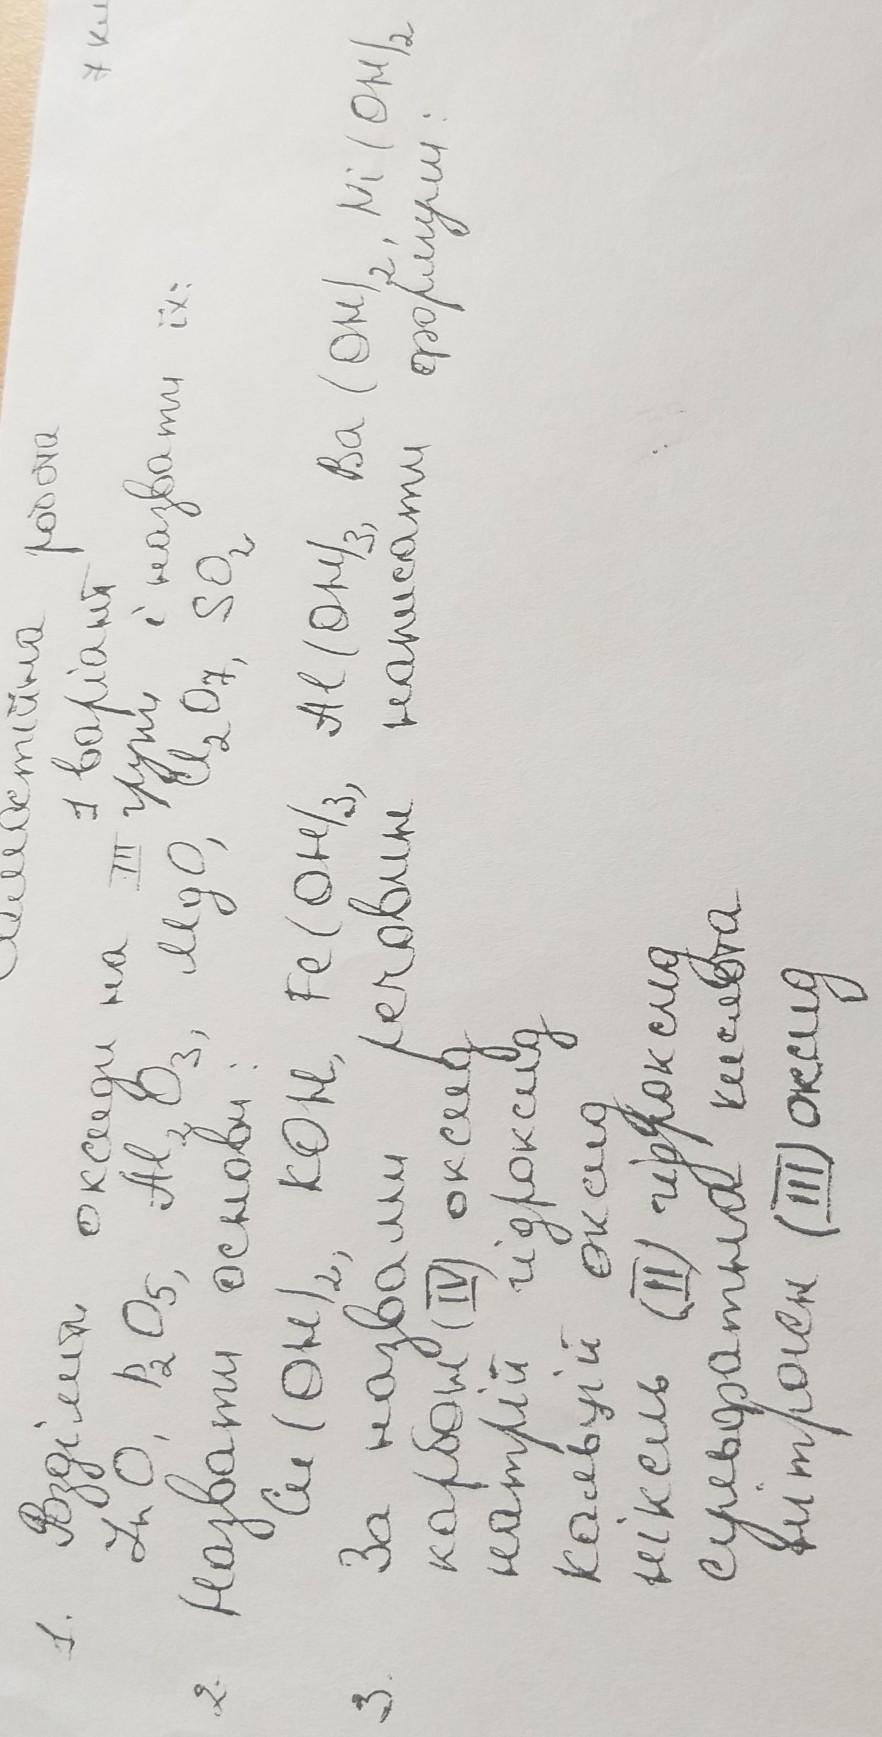 Самостійна робота
1 варіант 7 кл
1. Розділити оксиди на III групи і назвати їх:
ZnO, P2O5, Al2O3, MgO, Cl2O7, SO2
2. Назвати основи:
Cu(OH)2, KOH, Fe(OH)3, Al(OH)3, Ba(OH)2, Ni(OH)2
3. За назвами речовин написати формули:
карбон (IV) оксид
натрій гідроксид
кальцій оксид
нікель (II) гідроксид
сульфатна кислота
нітроген (III) оксид